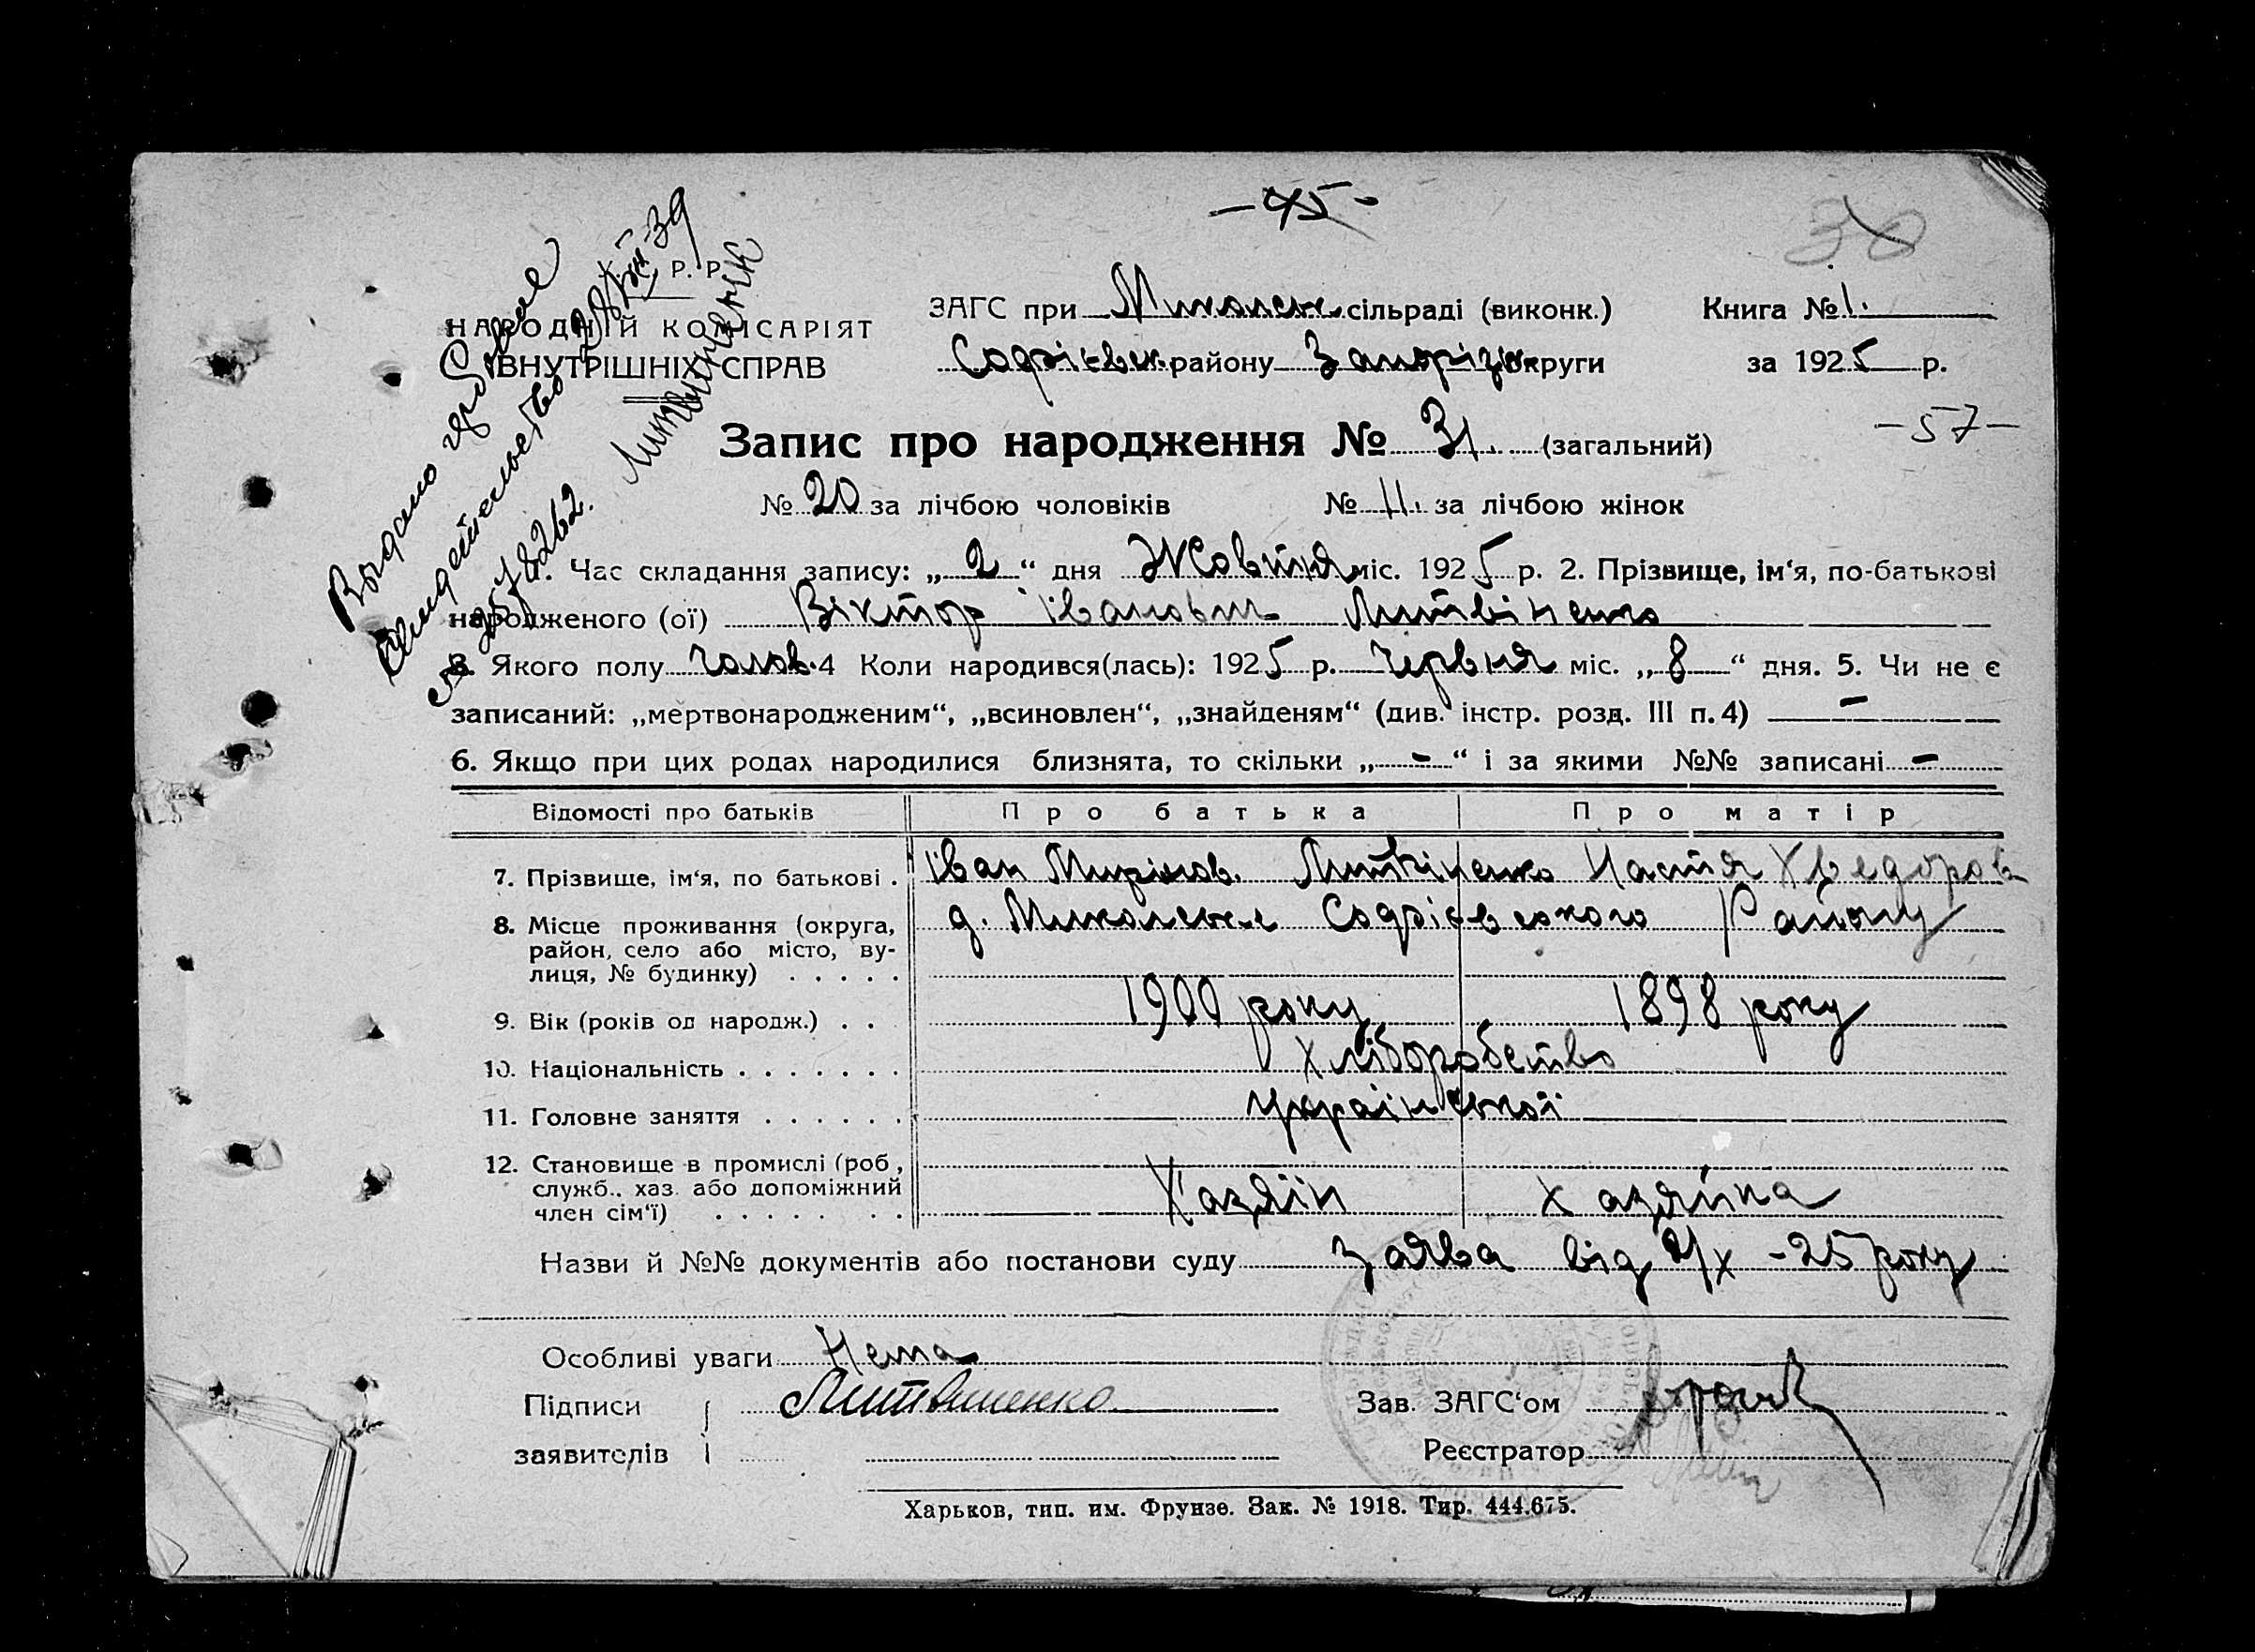 -45-
38
У. С. Р. Р.
НАРОДНІЙ КОМІСАРІЯТ
ВНУТРІШНІХ СПРАВ
ЗАГС при Микольськ. сільраді (виконк.) Книга № 1.
Софієвськ. району Запорізьк. округи за 1925 р.
-57-
Запис про народження № 31. (загальний)
№ 20 за лічбою чоловіків № 11. за лічбою жінок
Выдано
Свидетельство
78262.
1. Час складання запису: „2“ дня Жовтня міс. 1925 р. 2. Прізвище, ім‘я, по-батькові
народженого (ої) Віктор Іванович Литвіненко
3. Якого полу чолов. 4 Коли народився(лась): 1925 р. Червня міс. „8“ дня. 5. Чи не є
записаний: „мертвонародженим“, „всиновлен“, „знайденям“ (див. інстр. розд. III п. 4) –
6. Якщо при цих родах народилися близнята, то скільки „-“ і за якими №№ записані -
Відомості про батьків Про батька Про матір
7. Прізвище, ім‘я, по батькові . Іван Миронов. Литвіненко Настя Хведоров
8. Місце проживання (округа,
район, село або місто, ву-
лиця, № будинку) . . . . . Софієвського Району
9. Вік (років од народж.) . . 1900 року 1898 року
10. Національність . . . . . . . Хліборобство
11. Головне заняття . . . . . . української
12. Становище в промислі (роб.,
служб., хаз. або допоміжний
член сім‘ї) . . . . . . . . Хазяїн хазяйка
Назви й №№ документів або постанови суду Заява від 2/X -25 року
Особливі уваги Нема
Підписи Литвиненко Зав. ЗАГС‘ом
заявителів Реєстратор
Харьков, тип. им. Фрунзе. Зак. № 1918. Тир. 444.675.